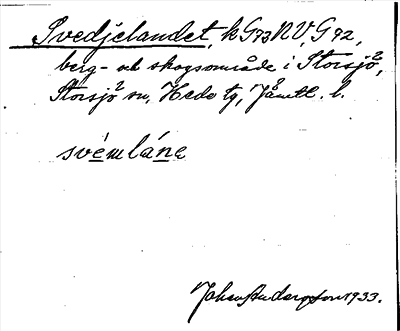 Svedjelandet, k G73NV, G92,
berg- och skogsområde i Storsjö,
Storsjö sn, Hede tg, Jämtl. l.
svémláne
Johan Anderzon 1933.